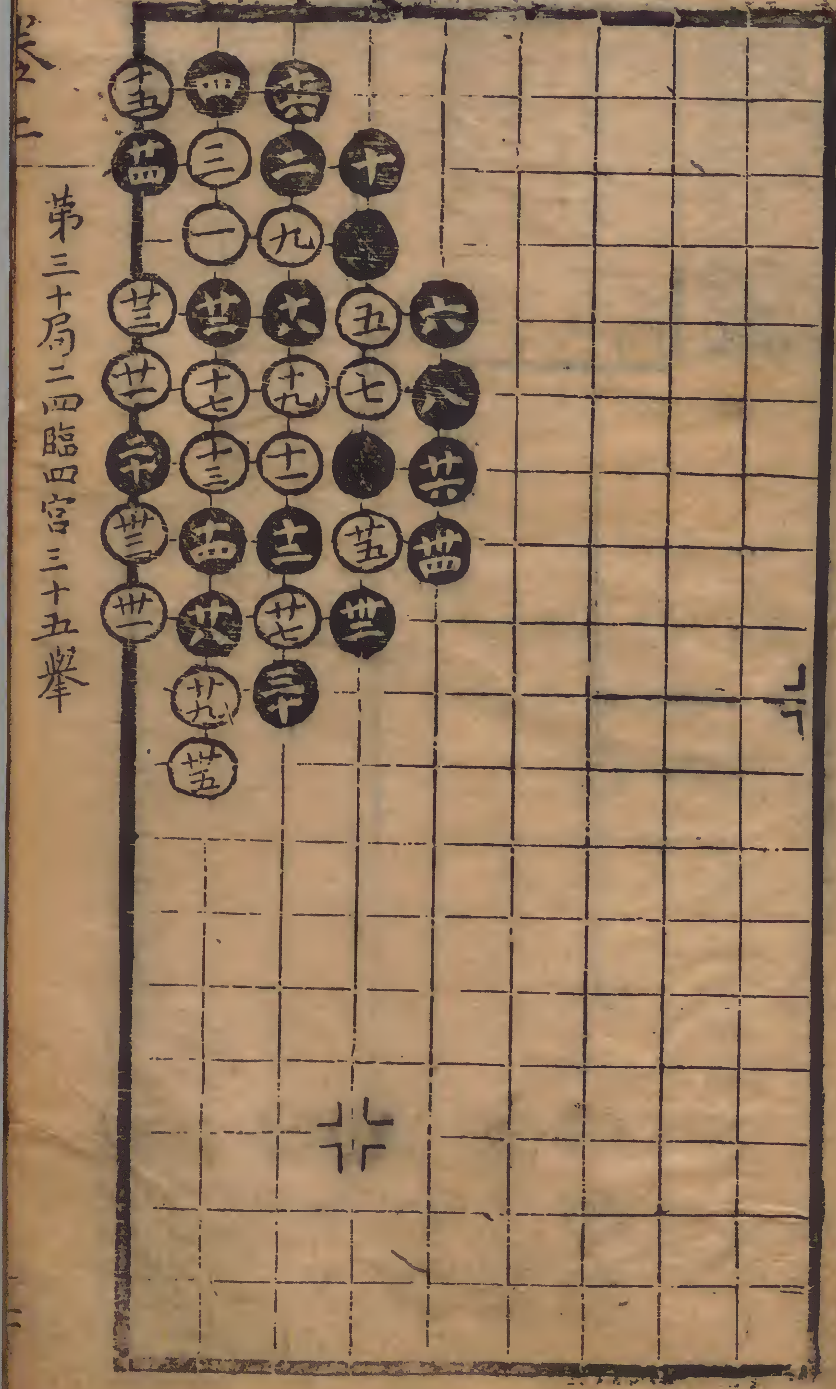 第三十局二四臨四宮三十五舉
卷二
十五 四 十六
廿四 三 二 十
一 九
廿三 廿二 十八 五 六
廿一 十七 十九 七 八
二十 十三 十一 廿六
卅三 十四 十二 廿五 卅四
卅一 廿八 廿七 卅二
廿九 三十
卅五